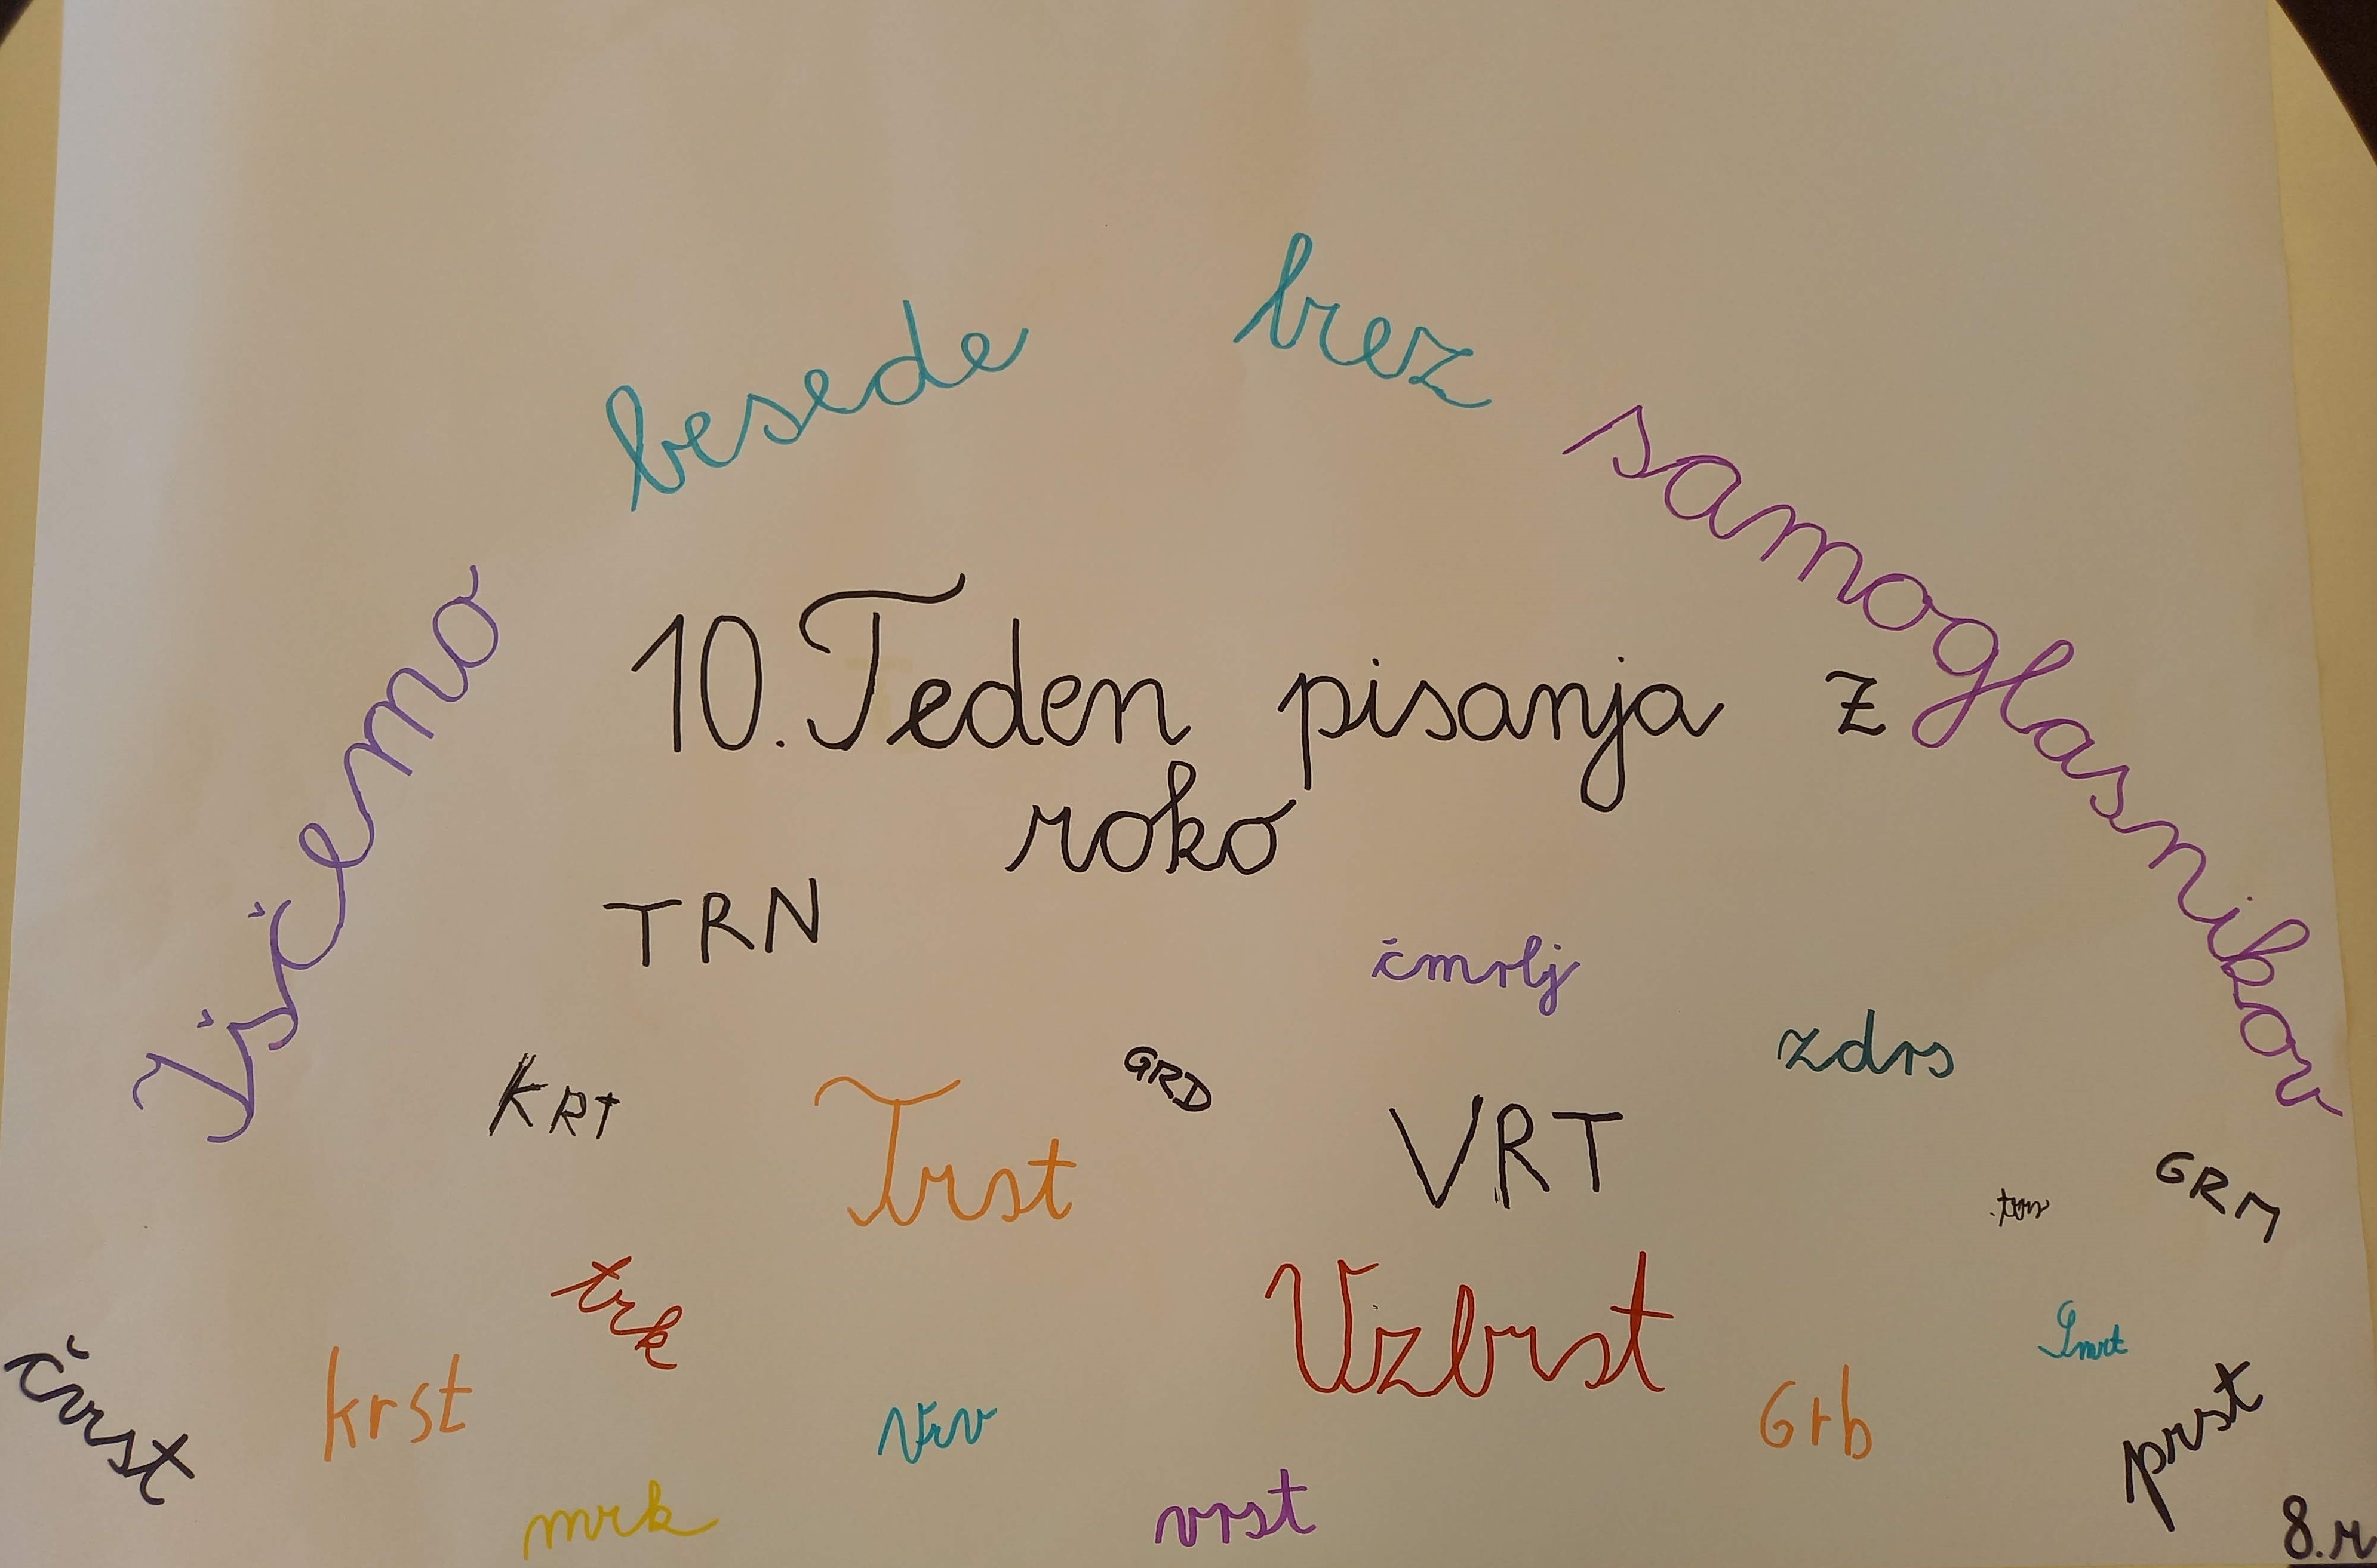 Iščemo besede brez samoglasnikov
10. Teden pisanja z
roko
TRN
čmrlj
zdrs
KRT
Trst
GRD
VRT
GRM
trk
Vzbrst
Smrt
čvrst
krst
Vrv
Grb
prst
mrk
vrst
8.r